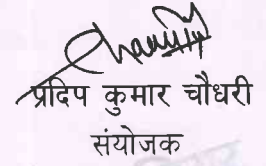 प्रदिप कुमार चौधरी
संयोजक